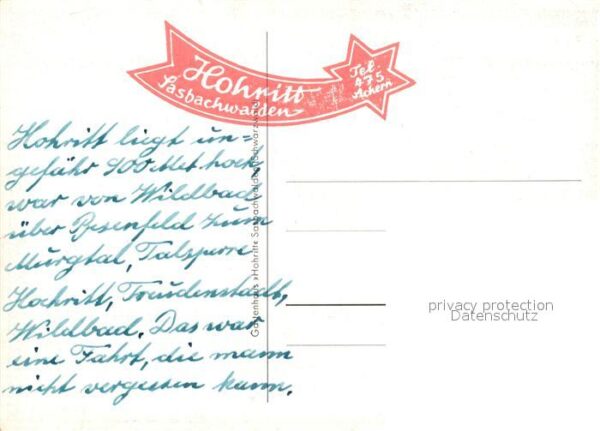 Hohritt
Sasbachwalden
Tel.
475
Achern
Hohritt liegt un=
gefähr 900 Met hoch,
war von Wildbad
über Besenfeld zum
Murgtal, Talsperre
Hochritt, Freudenstadt,
Wildbad. Das war
eine Fahrt, die mann
nicht vergessen kann.
Gästehaus »Hohritt« Sasbachwalden Schwarzwald
privacy protection
Datenschutz